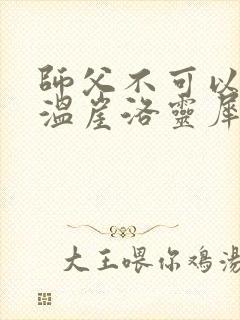 師父不可以
溫崖洛靈犀
大王喂你鸡湯